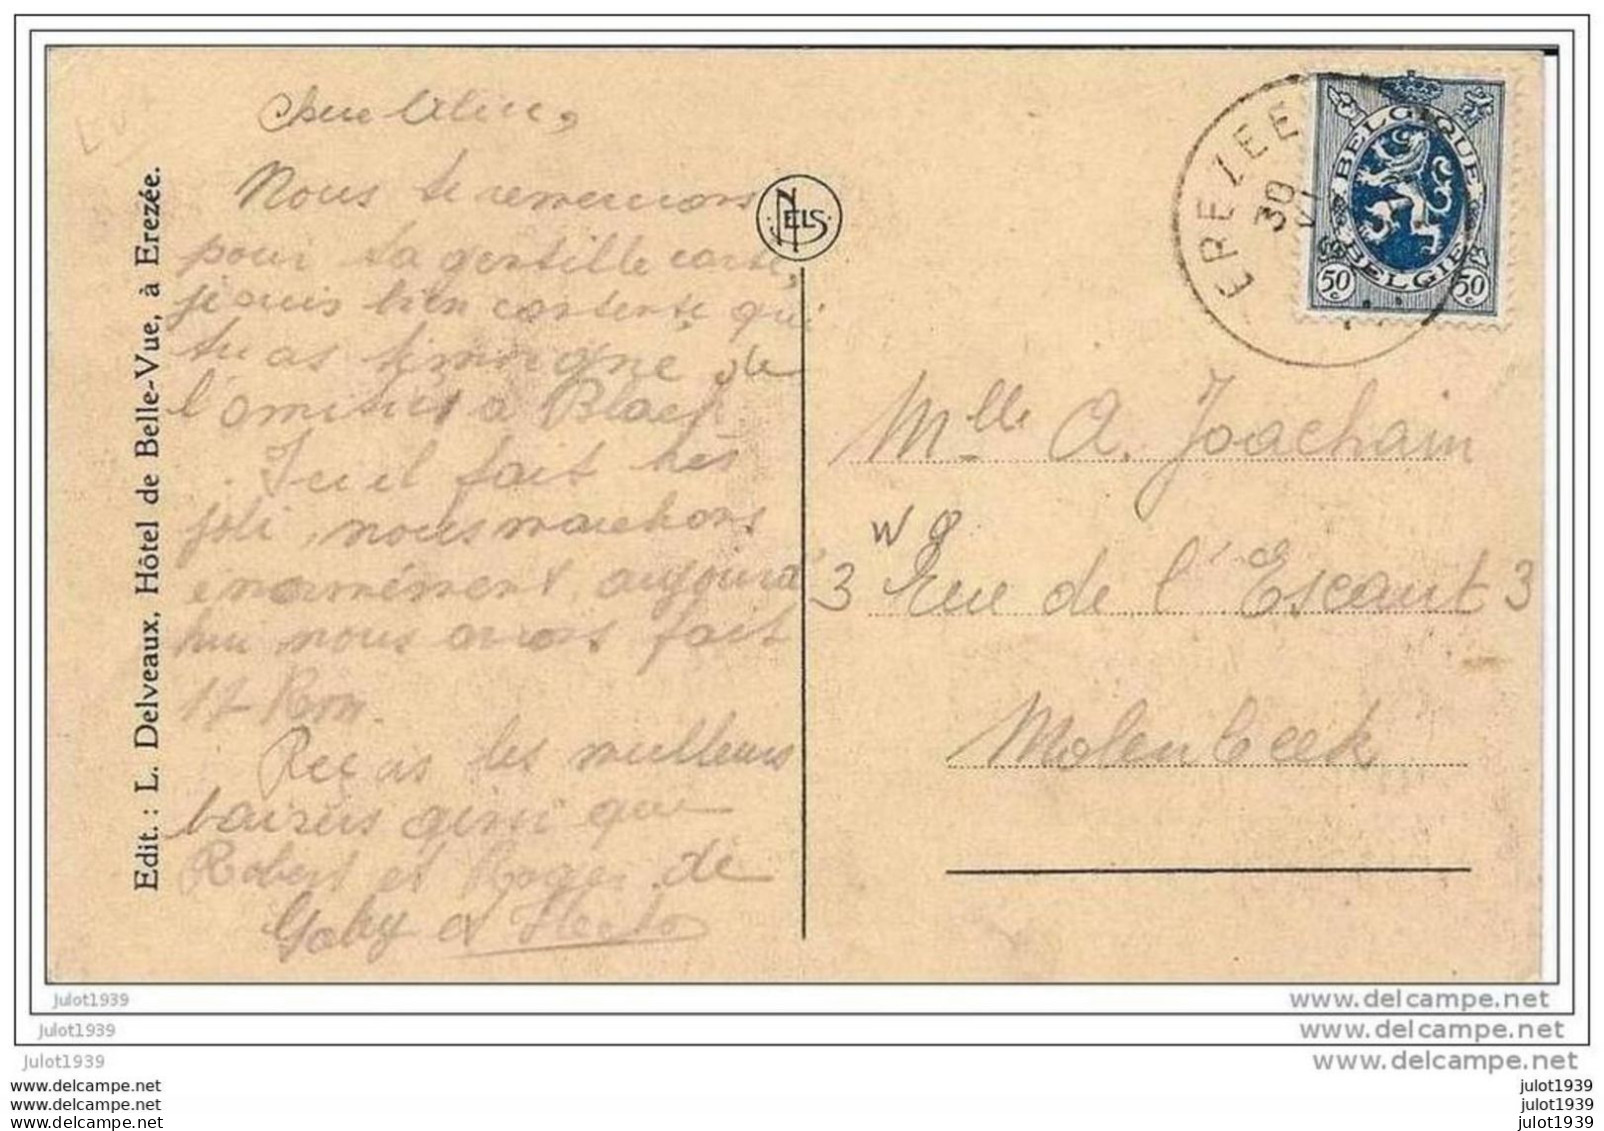 Edit. : L. Delveaux, Hôtel de Belle-Vue, à Erezée.
Chere Aline,
Nous te remercions
pour ta gentille carte,
je suis bien contente que
tu as témoigné de
l'amitié à
Ici il fait très
joli, nous marchons
énormément aujourd'
hui nous avons fait
17 Km.
Reçois les meilleurs
baisers ainsi que
Robert et Roger de
Gaby et
NELS
EREZEE
30
VI
BELGIQUE
BELGIE
50 c 50 c
Mlle A. Joachain
W 8
3 Rue de l'Escaut 3
Molenbeek
julot1939 www.delcampe.net
julot1939 www.delcampe.net
julot1939 www.delcampe.net
www.delcampe.net julot1939
www.delcampe.net julot1939
www.delcampe.net julot1939